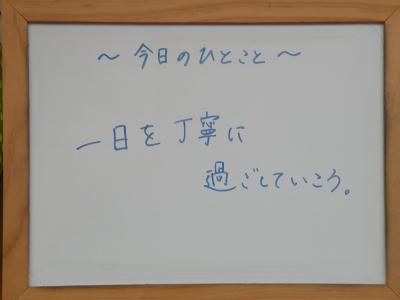 ～今日のひとこと～
一日を丁寧に
過ごしていこう。